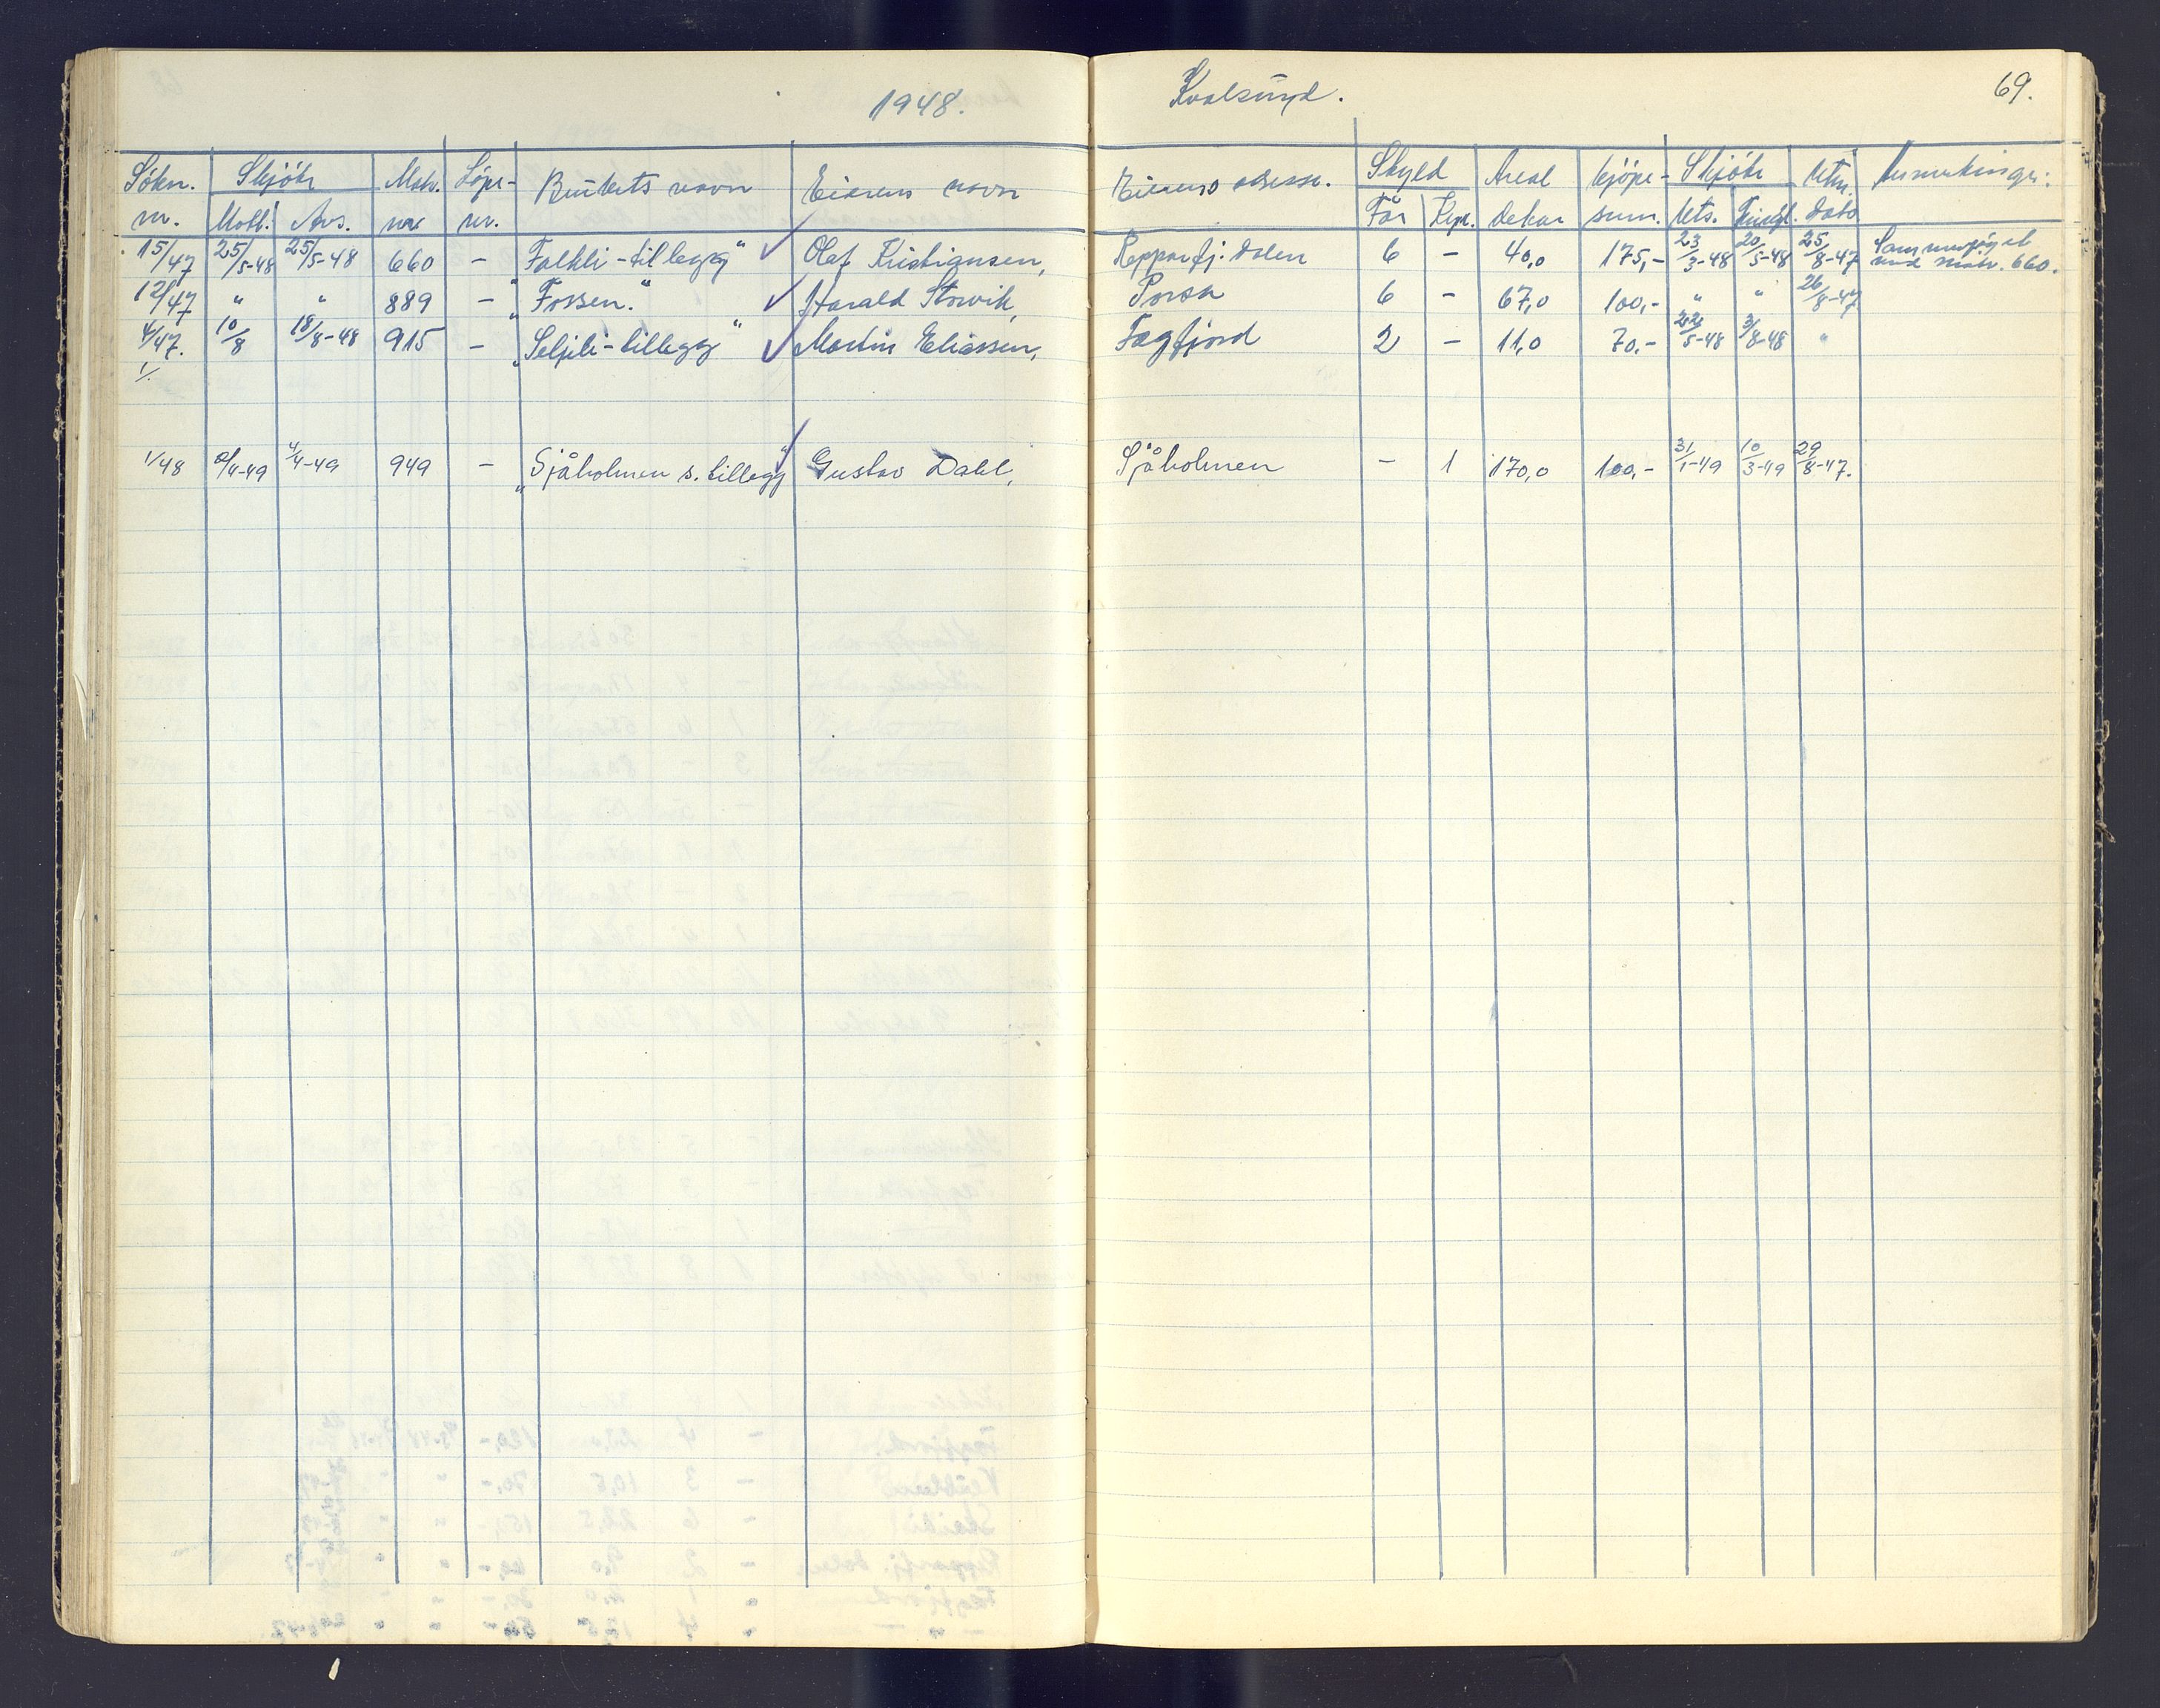 1948. Kvalsund. 69.
Søkn. Skjøte Matr. Løpe- Brukets navn Eierens navn Eierens adresse. Skyld Areal kjøpe- Skjøte Utm. Anmerkinger:
nr. Mott. Avs. nr. nr. Før dekar sum. Uts. Tingl. dato
15/47 25/5-48 25/5-48 660 - "Falkli-tillegg" Olaf Kristiansen, Repparfj. dalen 6 - 40,0 175,- 23/3-48 20/5-48 25/8-47 Sammenføyet med matr. 660.
12/47 " " 889 - "Fossen." Harald Storvik, Porsa 6 - 67,0 100,- " " 26/8-47
4/47. 10/8 18/8-48 915 - "Seljeli-tillegg" Martin Eliassen, Fægfjord 2 - 11,0 70.- 22/5-48 3/8-48 "
1/.
1/48 4/4-49 949 - "Sjåholmen s. tillegg" Gustav Dahl, Sjåholmen - 1 170,0 100,- 31/1-49 10/3-49 29/8-47.